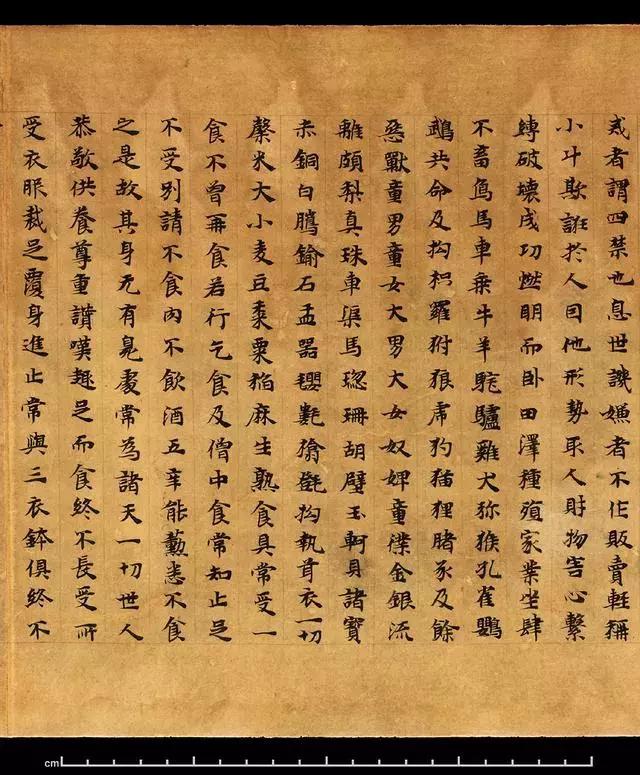 戒者謂四禁也息世譏嫌者不作販賣輕稱
小斗欺誑於人因他形勢取人財物害心繫
縛破壞成功燃明而臥田澤種殖家業坐肆
不畜象馬車乘牛羊駝驢雞犬狝猴孔雀鸚
鵡共命及拘枳羅豺狼虎豹猫狸猪豕及餘
惡獸童男童女大男大女奴婢童僕金銀流
離頗梨真珠車渠馬瑙珊胡璧玉軻貝諸寶
赤銅白鑞鍮石盂器氍毹毾㲪拘執毛衣一切
穀米大小麥豆黍粟稻麻生熟食具常受一
食不曾再食若行乞食及僧中食常知止足
不受別請不食肉不飲酒五辛能薰悉不食
之是故其身无有臭處常為諸天一切世人
恭敬供養尊重讚嘆趣足而食終不長受所
受衣服裁足覆身進止常與三衣鉢俱終不
cm